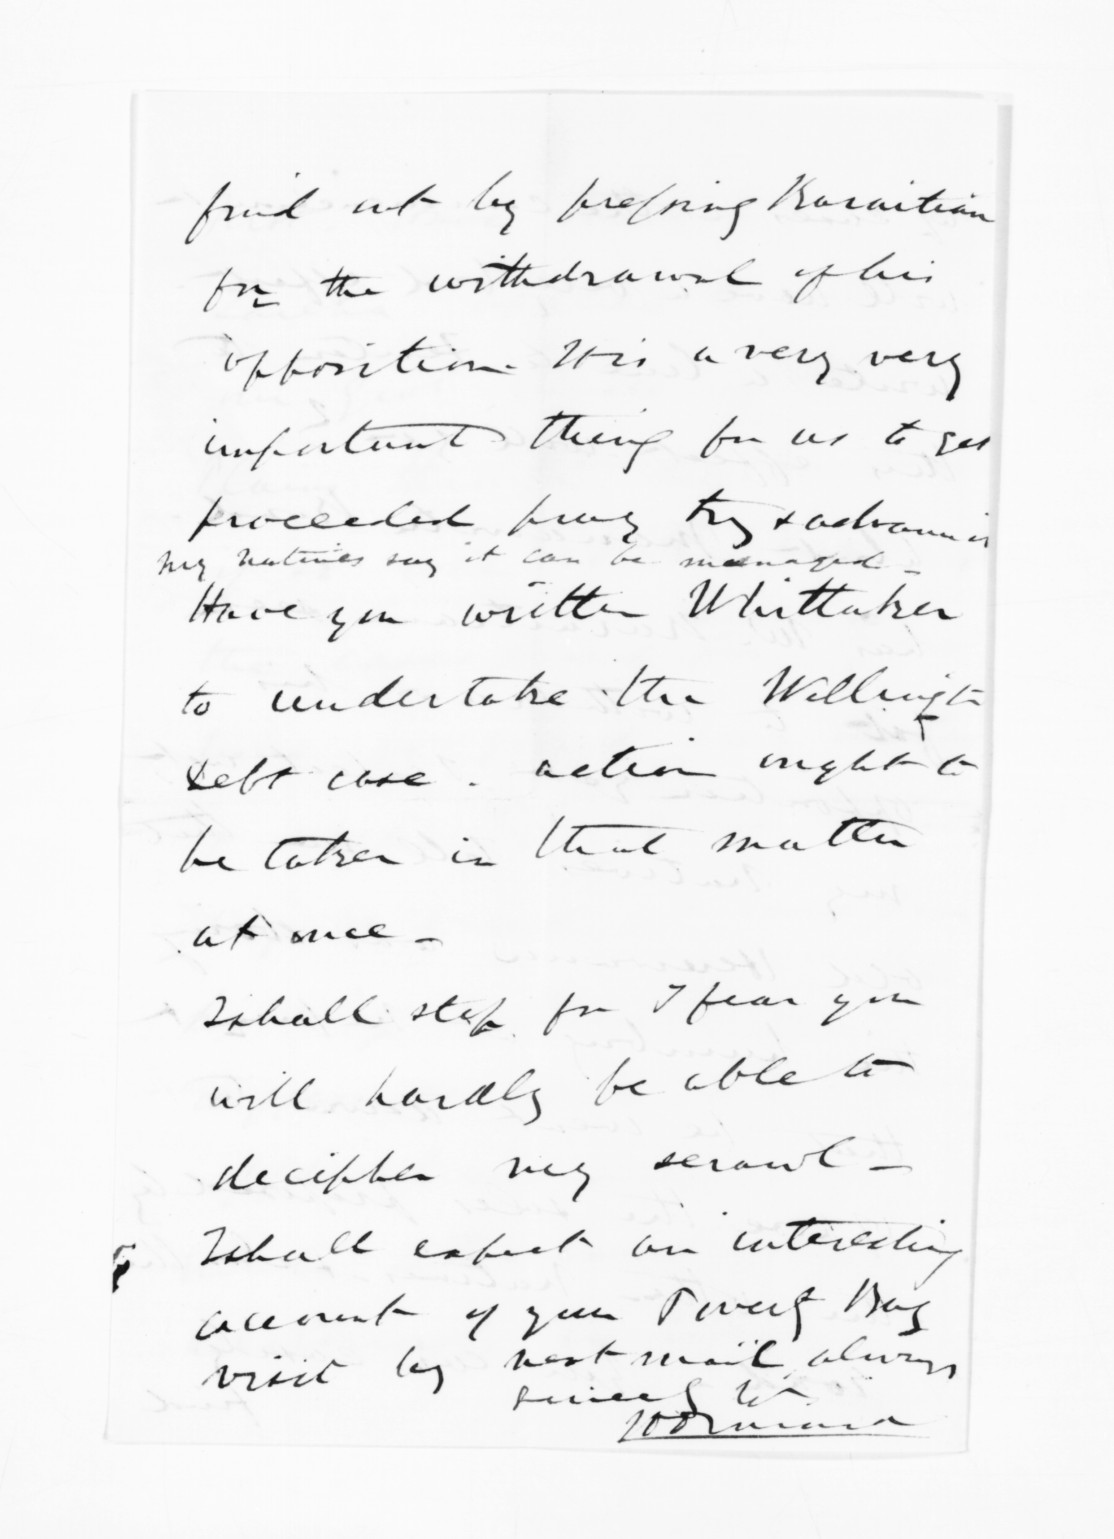 find out by pressing Karaitiana
for the withdrawal of his
opposition. It is a very very
important thing for us to get
proceeded pray try & advance it
my natives say it can be managed -
Have you written Whittaker
to undertake the Wellington
debt case. action ought to
be taken in that matter
at once -
I shall stop for I fear you
will hardly be able to
decipher my scrawl -
I shall expect an interesting
account of your Poverty Bay
visit by next mail, always
sincerely yrs